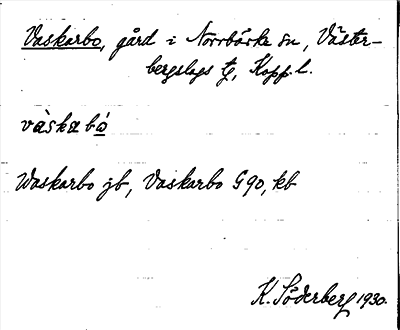 Vaskarbo, gård i Norrbärke sn, Väster-
bergslags tg, Kopp. l.
vàska bó
Waskarbo jb, Vaskarbo G 90, kb
K. Söderberg 1930.